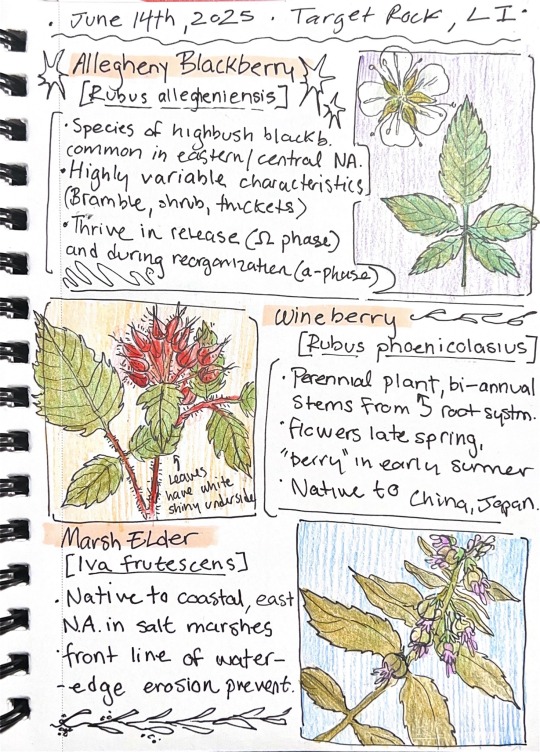 · June 14th, 2025 · Target Rock, LI ·
Allegheny Blackberry
[Rubus allegheniensis]
· Species of highbush blackb.
common in eastern/central NA.
· Highly variable characteristics
(Bramble, shrub, thickets)
· Thrive in release (Ω phase)
and during reorganization (α-phase)
Wineberry
[Rubus phoenicolasius]
· Perennial plant, bi-annual
stems from ↰ root systm.
· flowers late spring,
"berry" in early summer
· Native to China, Japan.
↑
Leaves
have white
shiny underside
Marsh Elder
[Iva frutescens]
· Native to coastal, east
N.A. in salt marshes
· front line of water-
-edge erosion prevent.